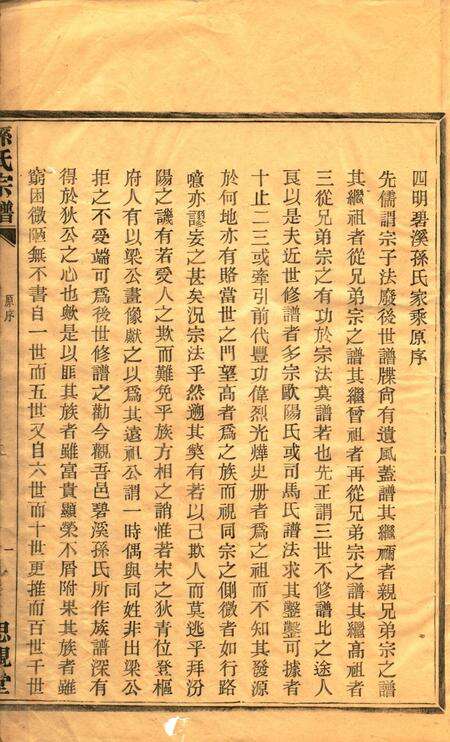 四明碧溪孫氏家乘原序
先儒謂宗子法廢後世譜牒尙有遺風蓋譜其繼禰者親兄弟宗之譜
其繼祖者從兄弟宗之譜其繼曾祖者再從兄弟宗之譜其繼高祖者
三從兄弟宗之有功於宗法莫譜若也先正謂三世不修譜比之途人
良以是夫近世修譜者多宗歐陽氏或司馬氏譜法求其鑿鑿可據者
十止二三或牽引前代豐功偉烈光燁史册者爲之祖而不知其發源
於何地亦有賂當世之門望高者爲之族而視同宗之側微者如行路
噫亦謬妄之甚矣況宗法乎然遡其獘有若以己欺人而莫逃乎拜汾
陽之譏有若受人之欺而難免乎族方相之誚惟若宋之狄青位登樞
府人有以梁公畫像獻之以爲其遠祖公謂一時偶與同姓非出梁公
拒之不受端可爲後世修譜之勸今觀吾邑碧溪孫氏所作族譜深有
得於狄公之心也歟是以匪其族者雖富貴顯榮不屑附果其族者雖
窮困微陋無不書自一世而五世又自六世而十世更推而百世千世
孫氏宗譜
原序
一
思親堂